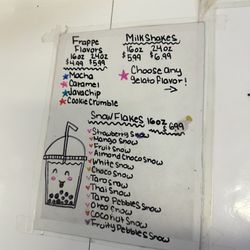 Frappe
Flavors
16oz 24oz
$4.99 $5.99
Mocha
Caramel
Java chip
Cookie Crumble
Milkshakes
16oz 24oz
$5.99 $6.99
Choose any
gelato flavor!
Snow Flakes 16oz
$6.99
Strawberry Snow
Mango Snow
Fruit Snow
Almond Choco Snow
White Snow
Choco Snow
Taro Snow
Thai Snow
Taro Pebbles Snow
Oreo Snow
Coconut Snow
Fruity Pebbles Snow